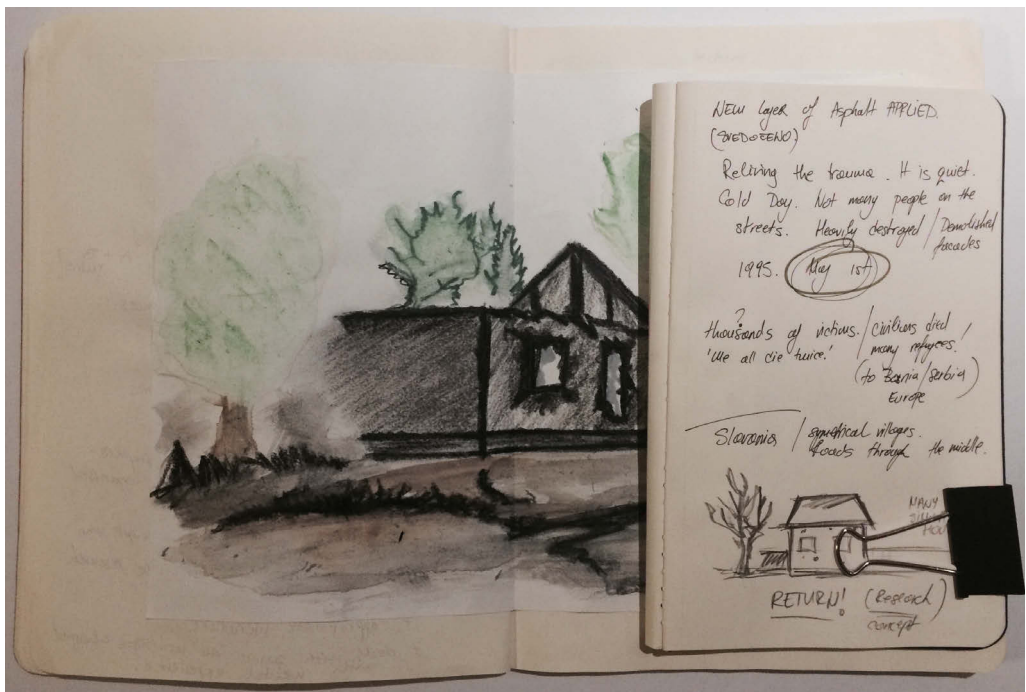 NEW layer of Asphalt APPLIED.
Reliving the trauma. It is quiet.
Cold Day. Not many people on the
streets. Heavily destroyed / Demolished
facades
1995. May 1st
?
thousands of victims. / civilians died
'We all die twice.' many refugees!
(to Bosnia / Serbia)
Europe
Slavonia / symetrical villages.
Roads through the middle.
MANY
RETURN! (Research)
concept